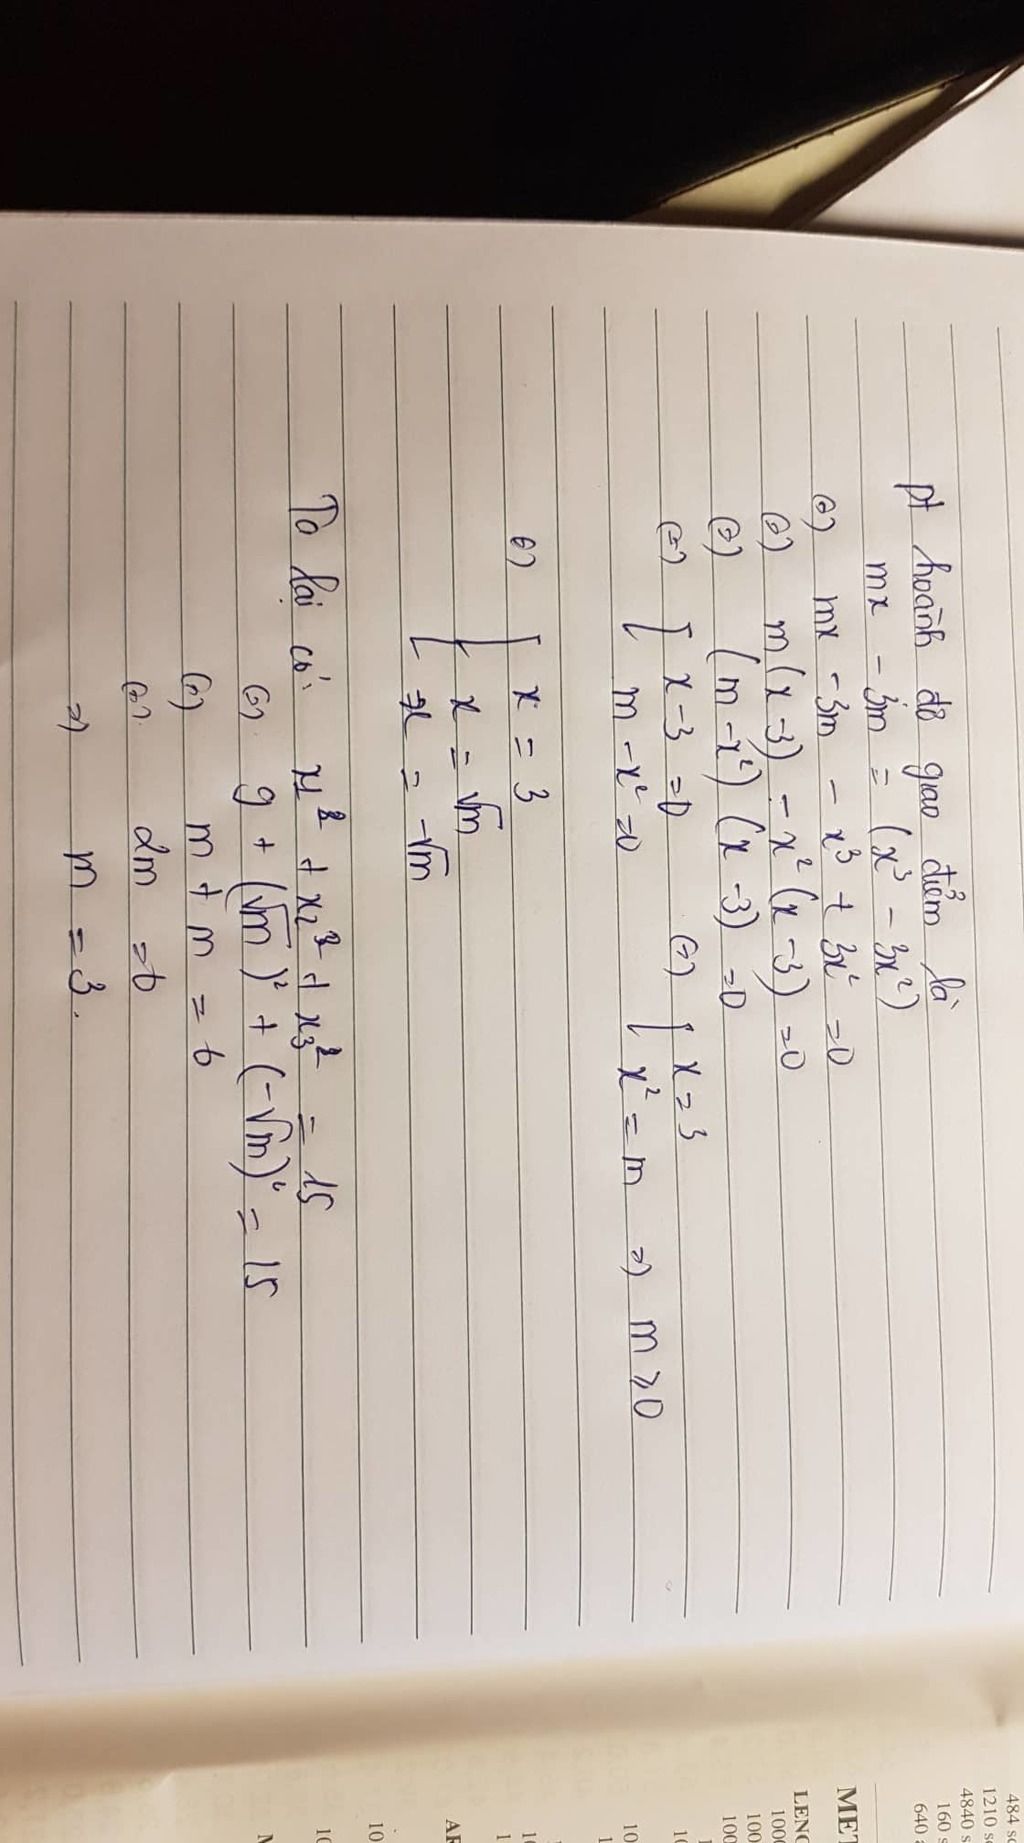 pt hoành độ giao điểm là
mx - 3m = (x³ - 3x²)
(=) mx - 3m - x³ + 3x² = 0
(=) m(x-3) - x²(x-3) = 0
(=) (m-x²)(x-3) = 0
(=) [ x-3 = 0 (=) [ x = 3
[ m-x² = 0 [ x² = m => m ≥ 0
(=) [ x = 3
[ x = √m
[ x = -√m
Ta lại có: x₁² + x₂² + x₃² = 15
(=) 9 + (√m)² + (-√m)² = 15
(=) m + m = 6
(=) 2m = 6
=> m = 3.
484
1210
4840
160
640
MET
LENG
100
100
10
10
AR
10